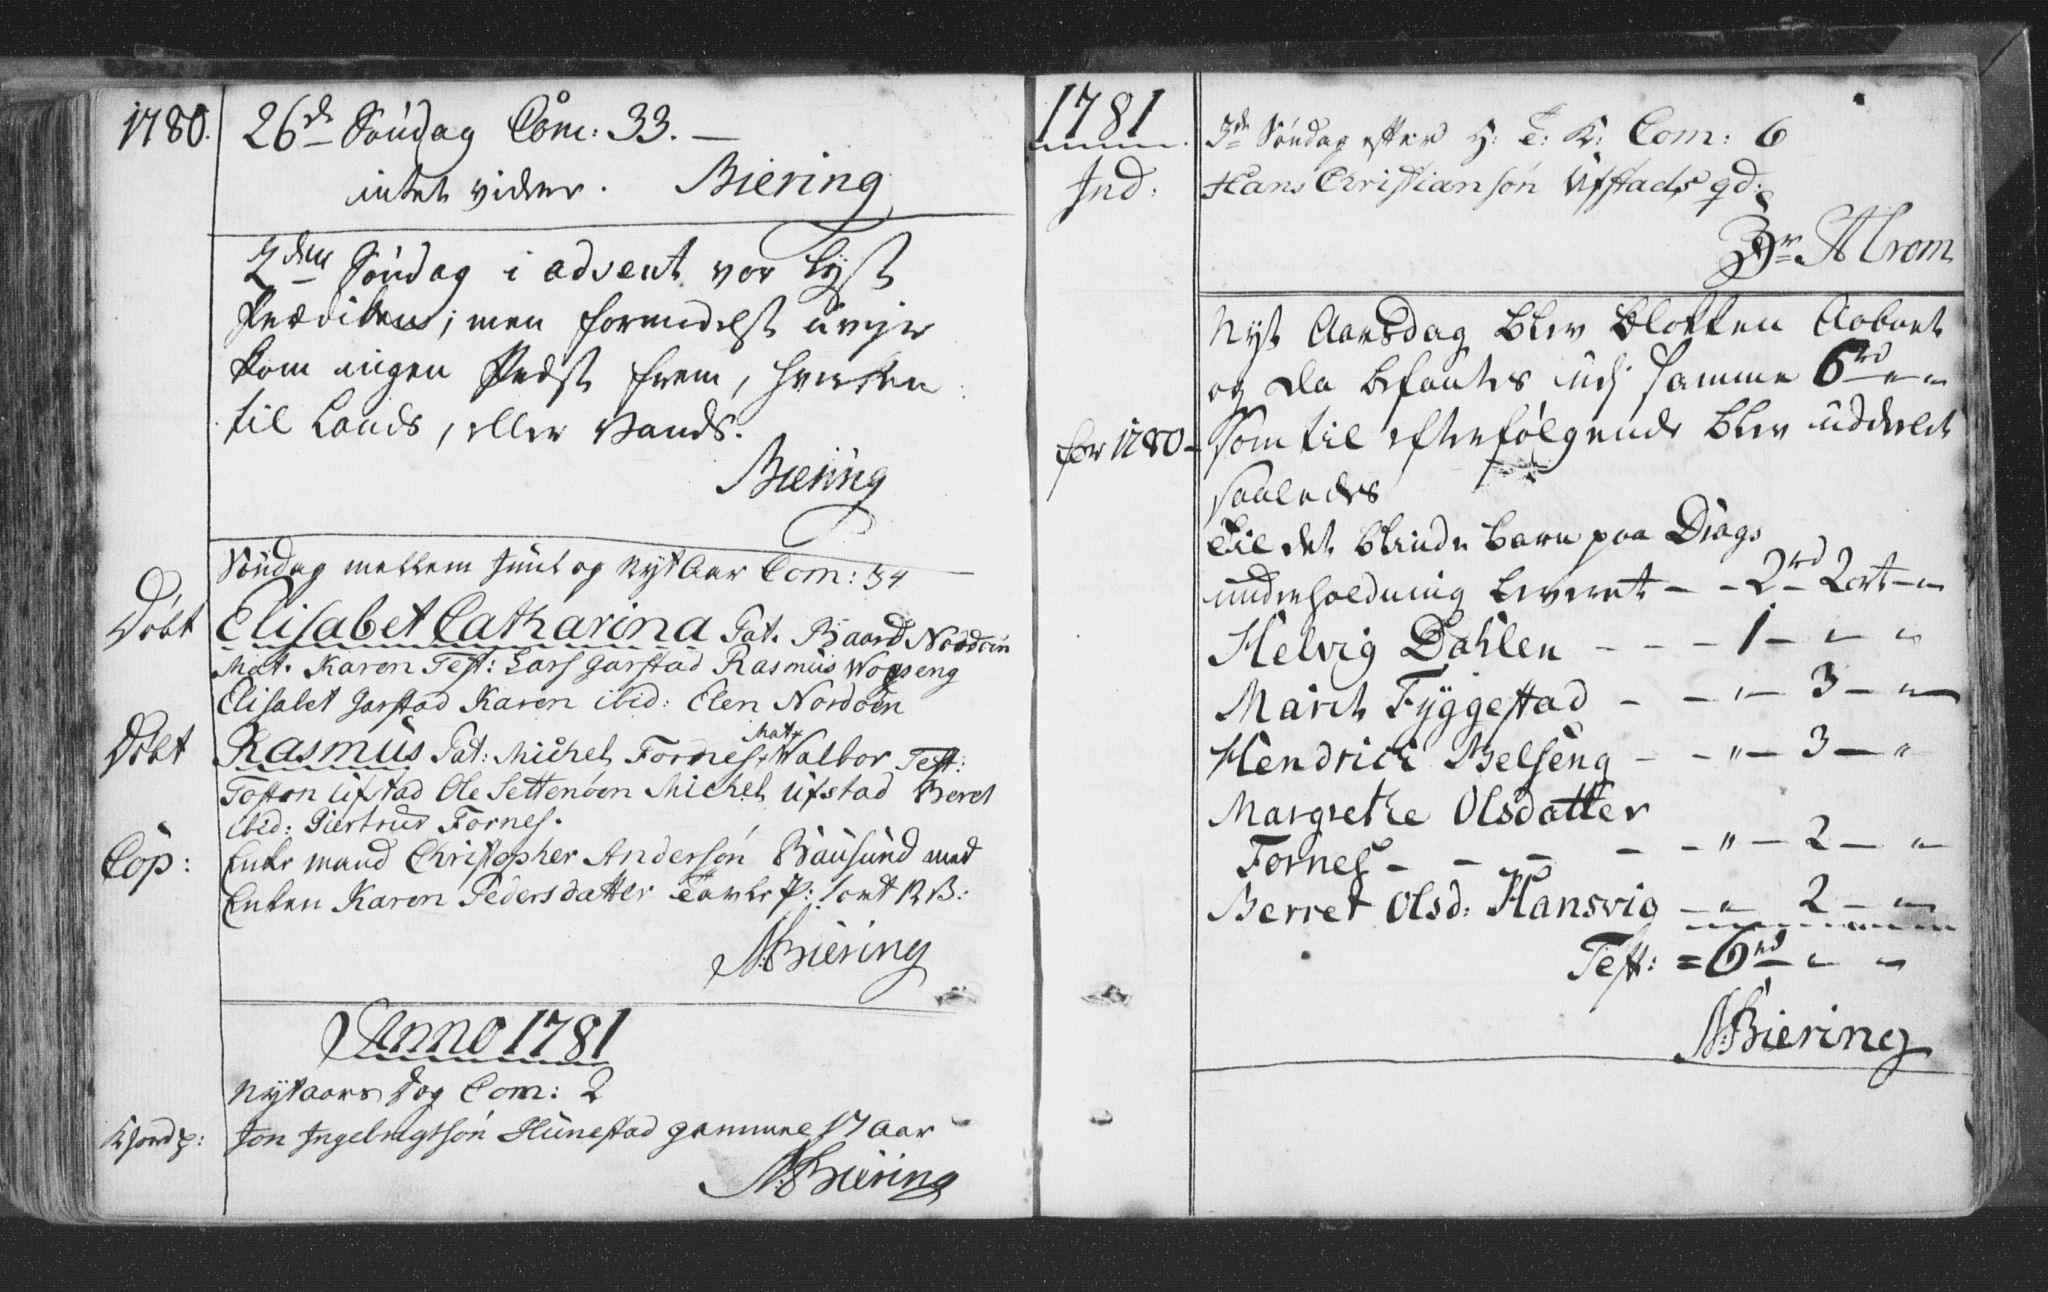 1780.
26de Søndag Com: 33. —
intet videre. Biering
2den Søndag i advent var lyst
Prædiken; men formedelst uvejr
kom ingen Præst frem, hverken
til Lands, eller Vands.
Biering
Søndag mellem Juul og Nyt Aar Com: 34
Døbt
Elisabet Catharina Pat. Baard Nordøen
Mat. Karen Test: Lars Garstad Rasmus Wogseng
Elisabet Garstad Karen ibid: Elen Nordøen
Døbt
Rasmus Pat: Michel Fornes, Mat. Walbor Test:
Toston Ufstad Ole Settenøen Michel Ufstad Beret
ibid: Giertrus Fornes.
Cop:
Enke mand Christopher Andersøn Bausund med
Enken Karen Pedersdatter
N: Biering
Anno 1781
Nytaars dag Com: 2
Jon Ingebrigtsøn Hunestad gammel 17 aar
N: Biering
1781
Ind:
3de Søndag efter H: T: K: Com: 6
Hans Christiansøn Ufstads qd:
Krom
Nyt Aarsdag blev Blokken Aabnet
og da befantes udj samme 6rd " "
for 1780 -
som til efterfølgende blev uddeelt
saaledes
Til det blinde barn paa Drags
underholdning leveret — - 2rd - 2ort - "
Helvig Dahlen - - - 1 - " "
Marit Fyggestad - - " - 3 - "
Hendrich Belseng - - " - 3 - "
Margrethe Olsdatter
Fornes - - - - - " - 2 - "
Berret Olsd: Hansvig - " 2 - "
Test: = 6rd " "
N: Biering